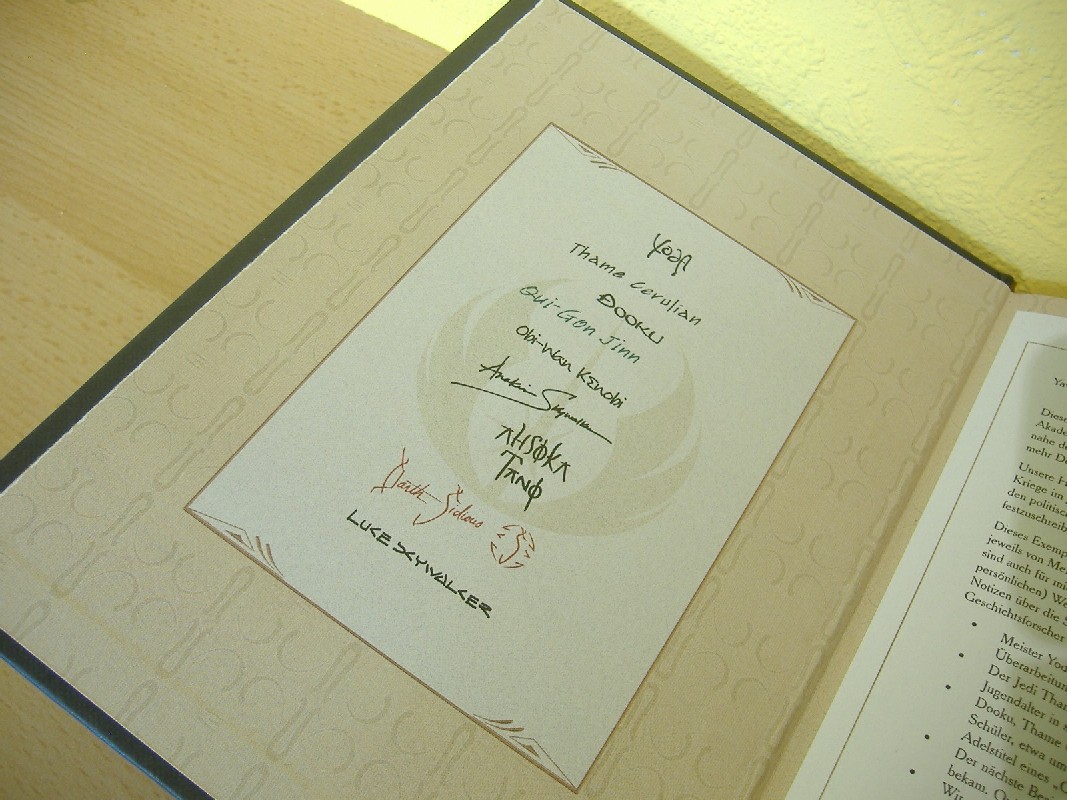 Yoda
Thame Cerulian
DOOKU
Qui-Gon Jinn
Obi-Wan Kenobi
Anakin Skywalker
AHSOKA
TANO
Darth Sidious
LUKE SKYWALKER
Diese
Akade
nahe d
mehr D
Unsere H
Kriege im
den politisc
festzuschreib
Dieses Exemp
jeweils von Me
sind auch für mi
persönlichen) We
Notizen über die S
Geschichtsforscher
• Meister Yod
• Überarbeitun
Der Jedi Than
• Jugendalter in s
Dooku, Thame
Schüler, etwa um
• Adelstitel eines „C
Der nächste Besi
• bekam. Qu
Wit